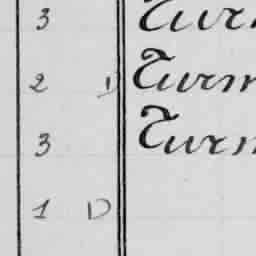 3 Turn
2 D Turm
3 Turn
1 D